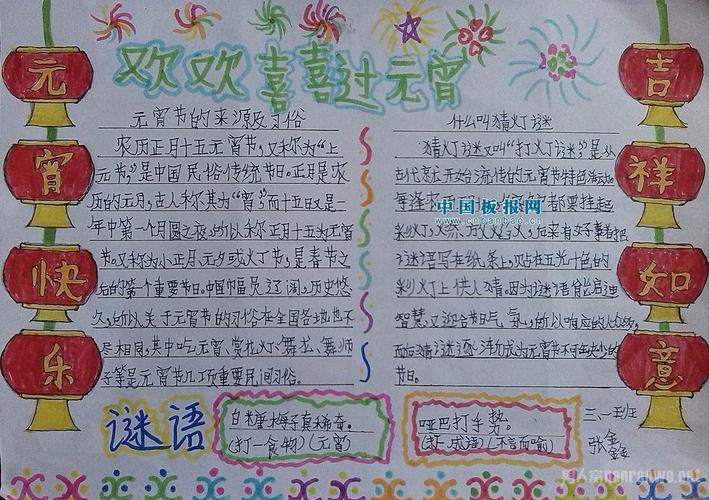 欢欢喜喜过元宵
元宵快乐
元宵节的来源及习俗
农历正月十五元宵节,又称为“上
元节”,是中国民俗传统节日。正月是农
历的元月,古人称其为“宵”,而十五日又是一
年中第一个月圆之夜,所以称正月十五为元宵
节。又称为小正月、元夕或灯节,是春节之
后的第一个重要节日。中国幅员辽阔,历史悠
久,所以关于元宵节的习俗在全国各地也不
尽相同,其中吃元宵、赏花灯、舞龙、舞狮
子等是元宵节几项重要民间习俗。
什么叫猜灯谜
猜灯谜又叫“打灯谜”,是从
古代就开始流传的元宵节特色活动。
每逢农历正月十五 都要挂起
彩灯,燃放火焰火,后来有好事者把
谜语写在纸条上,贴在五光十色的
彩灯上供人猜。因为谜语能启迪
智慧又迎合节日气氛,所以响应的人众多,
而后猜谜逐渐成为元宵节不可缺少的
节目。
吉祥如意
中国板报网
www.cnbanbao.cn
谜语
白糖梅子真稀奇。
(打一食物)(元宵)
哑巴打手势。
(打一成语)(不言而喻)
三、一班
张鑫鑫